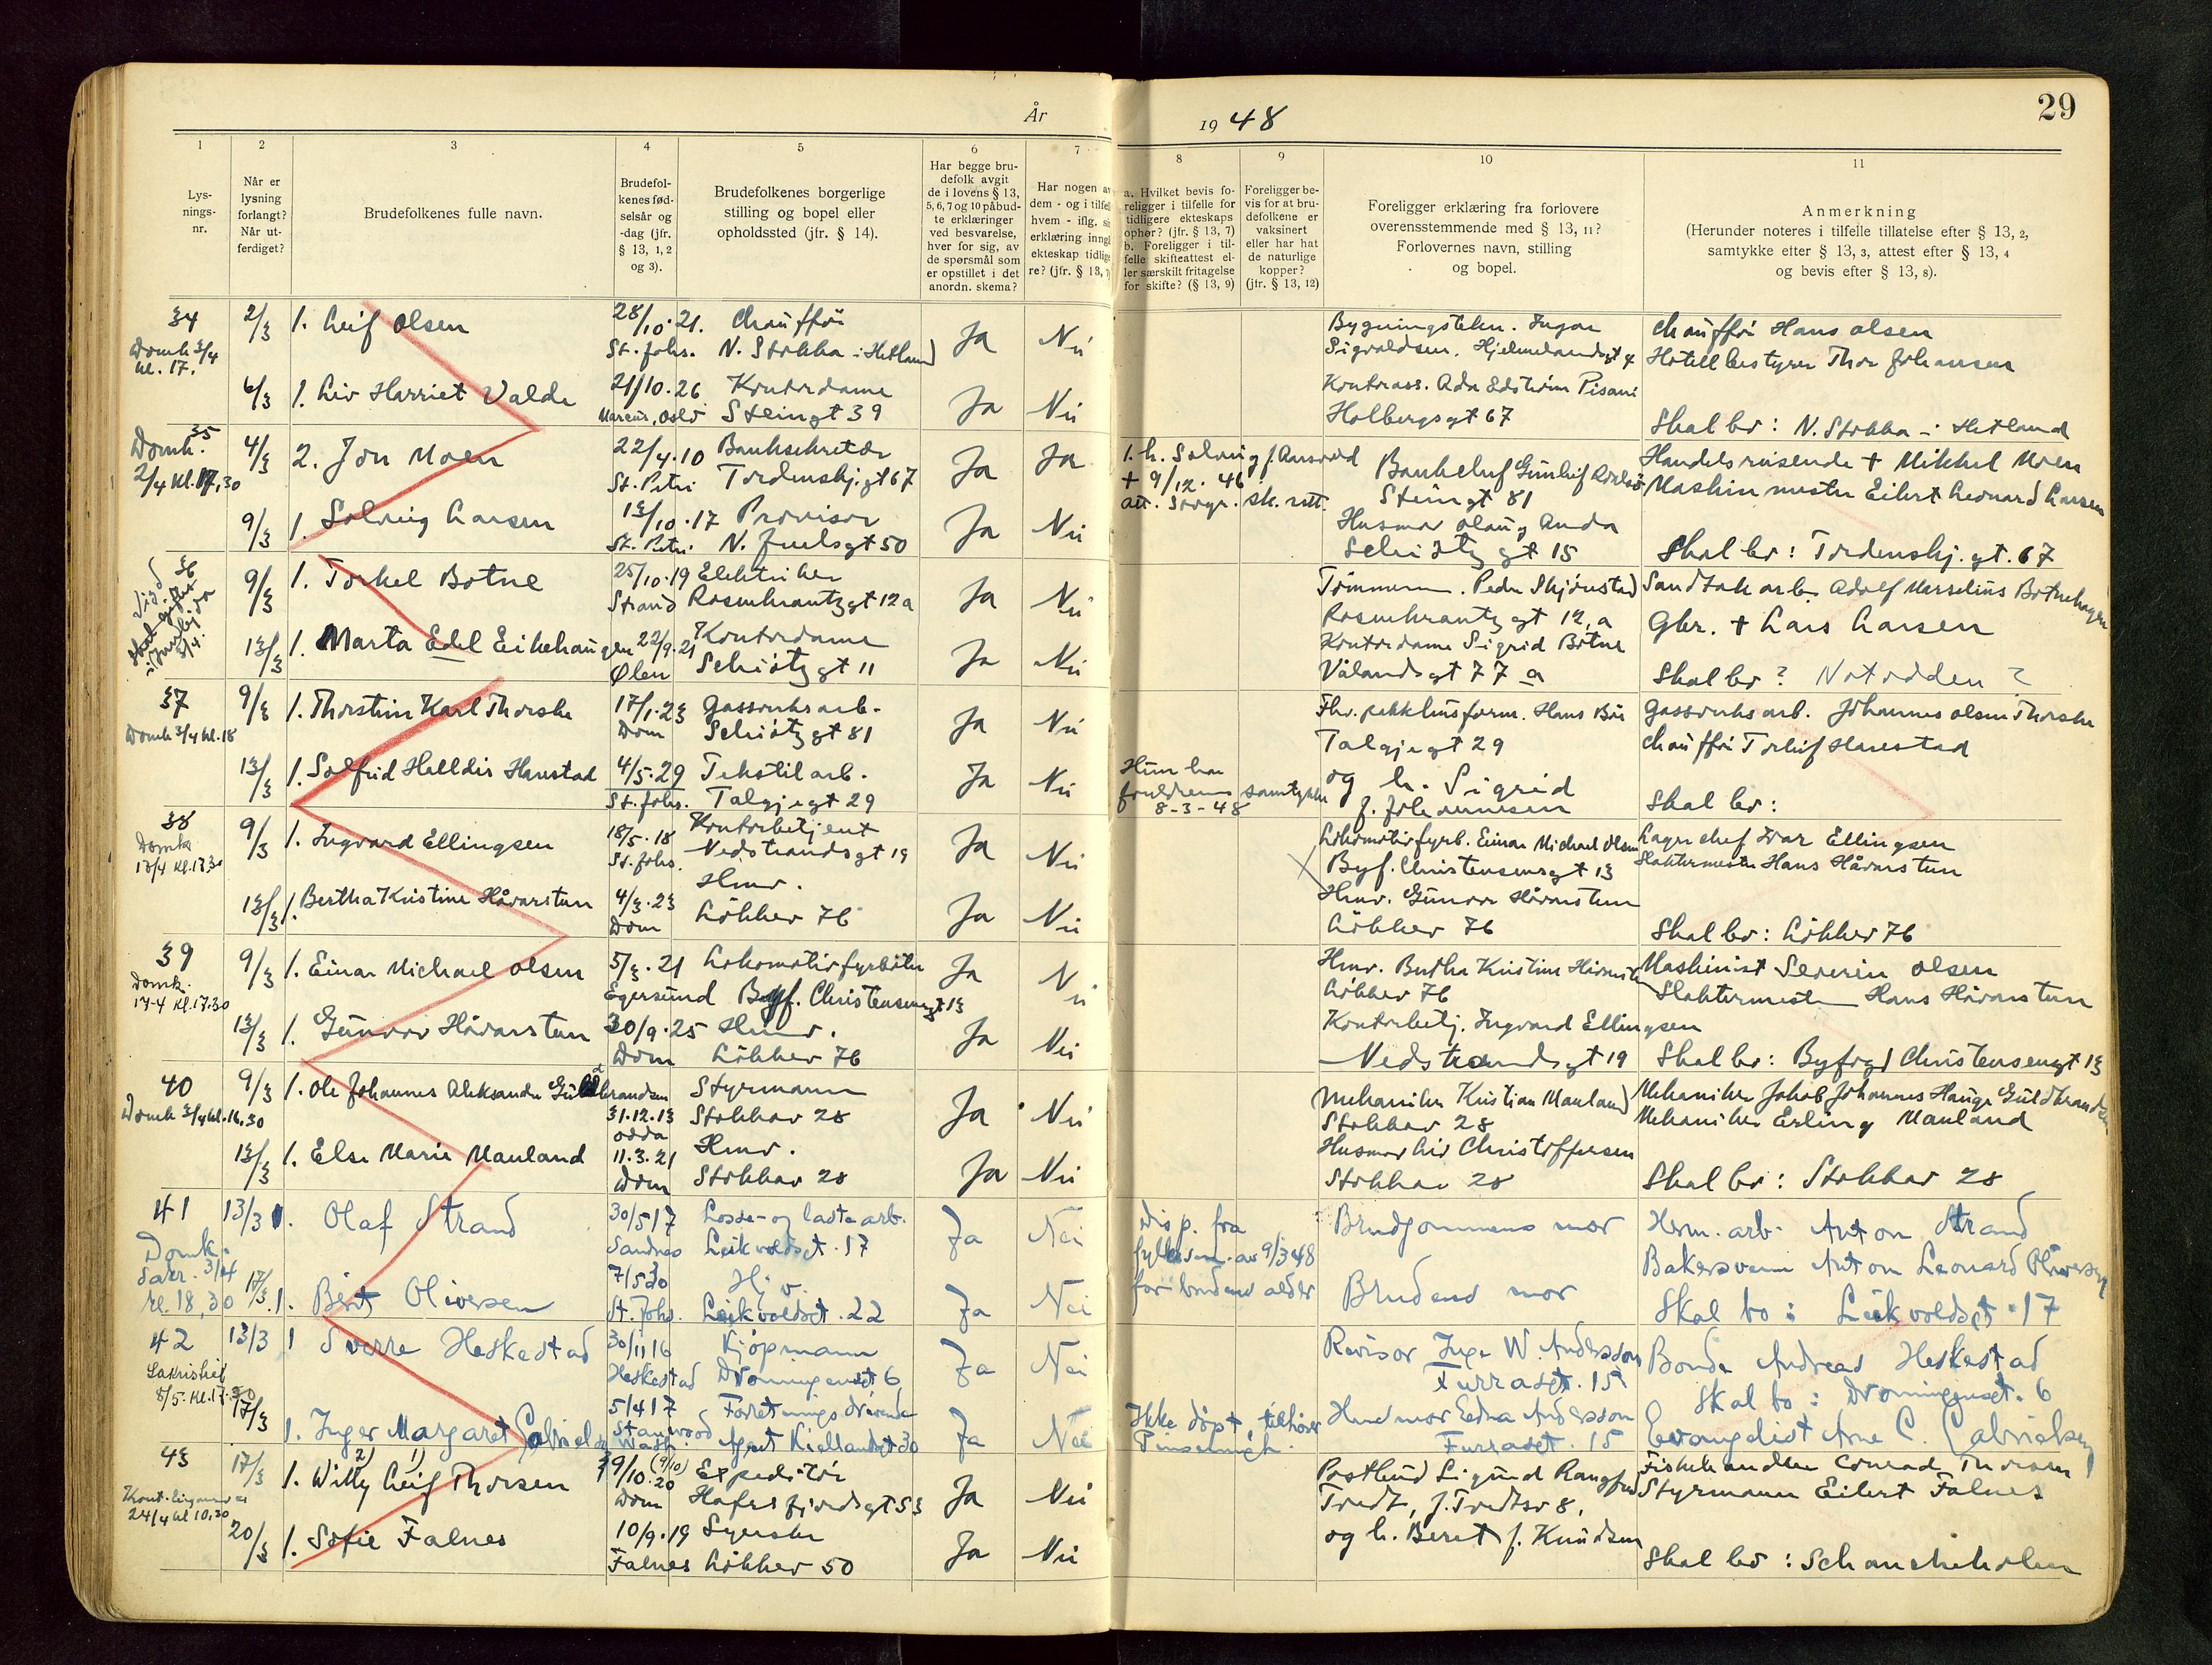 År 1948
29
1
Lys-
nings-
nr.
2
Når er
lysning
forlangt?
Når ut-
ferdiget?
3
Brudefolkenes fulle navn.
4
Brudefol-
kenes fød-
selsår og
-dag (jfr.
§ 13, 1, 2
og 3).
5
Brudefolkenes borgerlige
stilling og bopel eller
opholdssted (jfr. § 14).
6
Har begge bru-
defolk avgit
de i lovens § 13,
5, 6, 7 og 10 påbud-
te erklæringer
ved besvarelse,
hver for sig, av
de spørsmål som
er opstillet i det
anordn. skema?
7
Har nogen av
dem - og i tilfelle
hvem - iflg.
erklæring inngå
ekteskap tidlige
re? (jfr. § 13, 7)
8
a. Hvilket bevis fo-
religger i tilfelle for
tidligere ekteskaps
ophør? (jfr. § 13, 7)
b. Foreligger i til-
felle skifteattest el-
ler særskilt fritagelse
for skifte? (§ 13, 9)
9
Foreligger be-
vis for at bru-
defolkene er
vaksinert
eller har hat
de naturlige
kopper?
(jfr. § 13, 12)
10
Foreligger erklæring fra forlovere
overensstemmende med § 13, 11?
Forlovernes navn, stilling
og bopel.
11
Anmerkning
(Herunder noteres i tilfelle tillatelse efter § 13, 2,
samtykke efter § 13, 3, attest efter § 13, 4
og bevis efter § 13, 8).
34
Domk 3/4
kl. 17.
2/3 1. Leif Olsen 28/10.21. Chauffør Ja Nei
St. Johs. N. Stokka i Hetland
Bygningstekn. Ingar
Sigvaldsen. Hjelmelandsgt 4
Chauffør Hans Olsen
Hotellbestyrer Thor Johansen
6/3 1. Liv Harriet Valde 21/10.26 Kontordame Ja Nei
Oslo Steingt 39
Kontorass. Ada Edstrøm Pisani
Holbergsgt 67
Skal bo: N. Stokka i Hetland
35
Domk.
2/4 Kl. 17,30
4/3 2. Jon Moen 22/4.10 Banksekretær Ja Ja
St. Petri Tordenskj.gt 67
1. h. Solveig f. Aarsvold
+ 9/12. 46
att. Stvgr. sk. rett.
Bankchef Gunleif
Steingt 81
Handelsreisende + Mikkel Moen
Maskinmester Eilert Leonard Larsen
9/3 1. Solveig Larsen 13/10.17 Provisor Ja Nei
St. Petri. N. Juelsgt 50
Husmor Olaug Anda
Schiøtz gt 15
Skal bo: Tordenskj. gt. 67
36
9/3 1. Torkel Botne 25/10.19 Elektriker Ja Nei
Strand Rosenkrantzgt 12a
Tømmerm. Peder Skjørestad
Rosenkrantz gt 12 a
Sandtakarb. Adolf Marselius Botnehagen
13/3 1. Marta Edel Eikehaugen 22/9.21 Kontordame Ja Nei
Ølen Schiøtz gt 11
Kontordame Sigrid Botne
Vålandsgt 77 a
Gbr. + Lars Larsen
Skal bo? Notodden?
37
Domk 3/4 kl. 18
9/3 1. Thorstein Karl Thorske 17/1.23 Gassverksarb. Ja Nei
Dom Schiøtz gt 81
Fhv. pakkhusform. Hans Bøe
Talgjegt 29
Gassverksarb. Johannes Olsen Thorske
Chauffør Torleif Harestad
13/3 1. Solfrid Helldis Harestad 4/5.29 Tekstilarb. Ja Nei
St. Johs. Talgjegt 29
Hun har
foreldrenes samtykke
8-3-48
og h. Sigrid
f. Johannesen
Skal bo:
38
Domk
17/4 Kl. 17.30
9/3 1. Ingvard Ellingsen 18/5.18 Kontorbetjent Ja Nei
St. Johs. Nedstrandsgt 19
Lokomotivfyrb. Einar Michael Olsen
Byf. Christensensgt 13
Lagerchef Ivar Ellingsen
Slaktermester Hans Håvarstun
13/3 1. Bertha Kristine Håvarstun 4/3.23 Hmv. Ja Nei
Dom Løkkev 76
Hmv. Gunvor Håvarstun
Løkkev 76
Skal bo: Løkkev 76
39
Domk.
17-4 Kl. 17.30
9/3 1. Einar Michael Olsen 5/3.21 Lokomotivfyrbøter Ja Nei
Egersund Byf. Christensensgt 13
Hmv. Bertha Kristine Håvarstun
Løkkev 76
Maskinist Severin Olsen
Slaktermester Hans Håvarstun
13/3 1. Gunvor Håvarstun 30/9.25 Hmv. Ja Nei
Dom Løkkev 76
Kontorbetj. Ingvard Ellingsen
Nedstrandsgt 19
Skal bo: Byfogd Christensensgt 13
40
Domk 3/4 kl. 16.30
9/3 1. Ole Johannes Aleksander Guldbrandsen Styrmann Ja Nei
31.12.13 Stokkav 28
Odda
Mekaniker Kristian Mauland
Stokkav 28
Mekaniker Jakob Johannes Hauge Guldbrandsen
Mekaniker Erling Mauland
13/3 1. Else Marie Mauland 11.3.21 Hmv. Ja Nei
Dom Stokkav 28
Husmor Liv Christoffersen
Stokkav 28
Skal bo: Stokkav 28
41
Domk.
Sakr. 3/4
kl. 18,30
13/3 1. Olaf Strand 30/5 17 Losse- og lastearb. Ja Nei
Sandnes Leikvoldsgt. 17
Disp. fra
fylkesm. av 9/3 48
for brudens alder
Brudgommens mor
Herm. arb. Anton Strand
Bakersvenn Anton Leonard Oliversen
17/3 1. Berit Oliversen 7/5 30 Hj. v. Ja Nei
St. Johs. Leikvoldsgt. 22
Brudens mor
Skal bo: Leikvoldsgt. 17
42
Sakristiet
8/5. Kl. 17.30
13/3 1 Sverre Heskestad 30/11 16 Kjøpmann Ja Nei
Heskestad Dronningensgt 6
Revisor Inge W. Andersson
Furrasgt. 15
Bonde Andreas Heskestad
Skal bo: Dronningensgt. 6
17/3 1. Inger Margaret Gabrielsen 5/4 17 Forretningsdrivende Ja Nei
Stanwood Wash. Agent Kiellandsgt 30
Ikke døpt, tilhører
Pinsemenigh.
Husmor Edna Andersson
Furrasgt. 15
Evangelist Arne C. Gabrielsen
43
24/4 kl 10.30
17/3 2) 1)
1. Willy Leif Thorsen 9/10.20 (9/10) Expeditør Ja Nei
Dom Hafrsfjordsgt 53
Postbud Sigurd Rangfred
Tvedt, J. Tvedtsv 8,
Fiskehandler Conrad Thorsen
Styrmann Eilert Falnes
20/3 1. Sofie Falnes 10/9.19 Syerske Ja Nei
Falnes Løkkev 50
og h. Beret f. Knudsen
Skal bo: Schancheholen